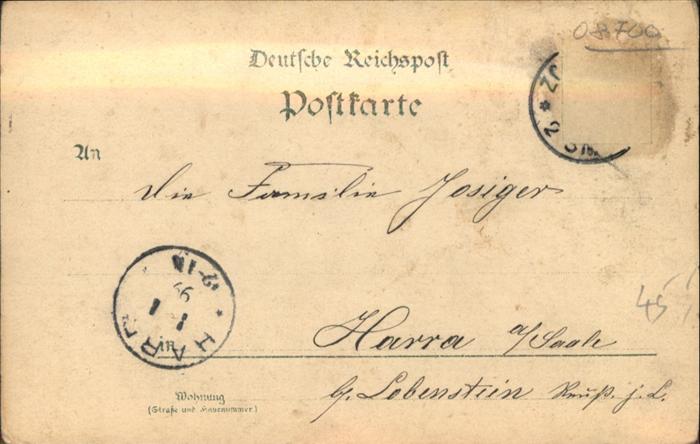 08700
Deutsche Reichspost
Postkarte
An
die Familie Josiger
HARRA
1 1 99
45
in
Harra a/Saale
Wohnung
(Straße und Hausnummer)
b/. Lobenstein Reuß. j. L.